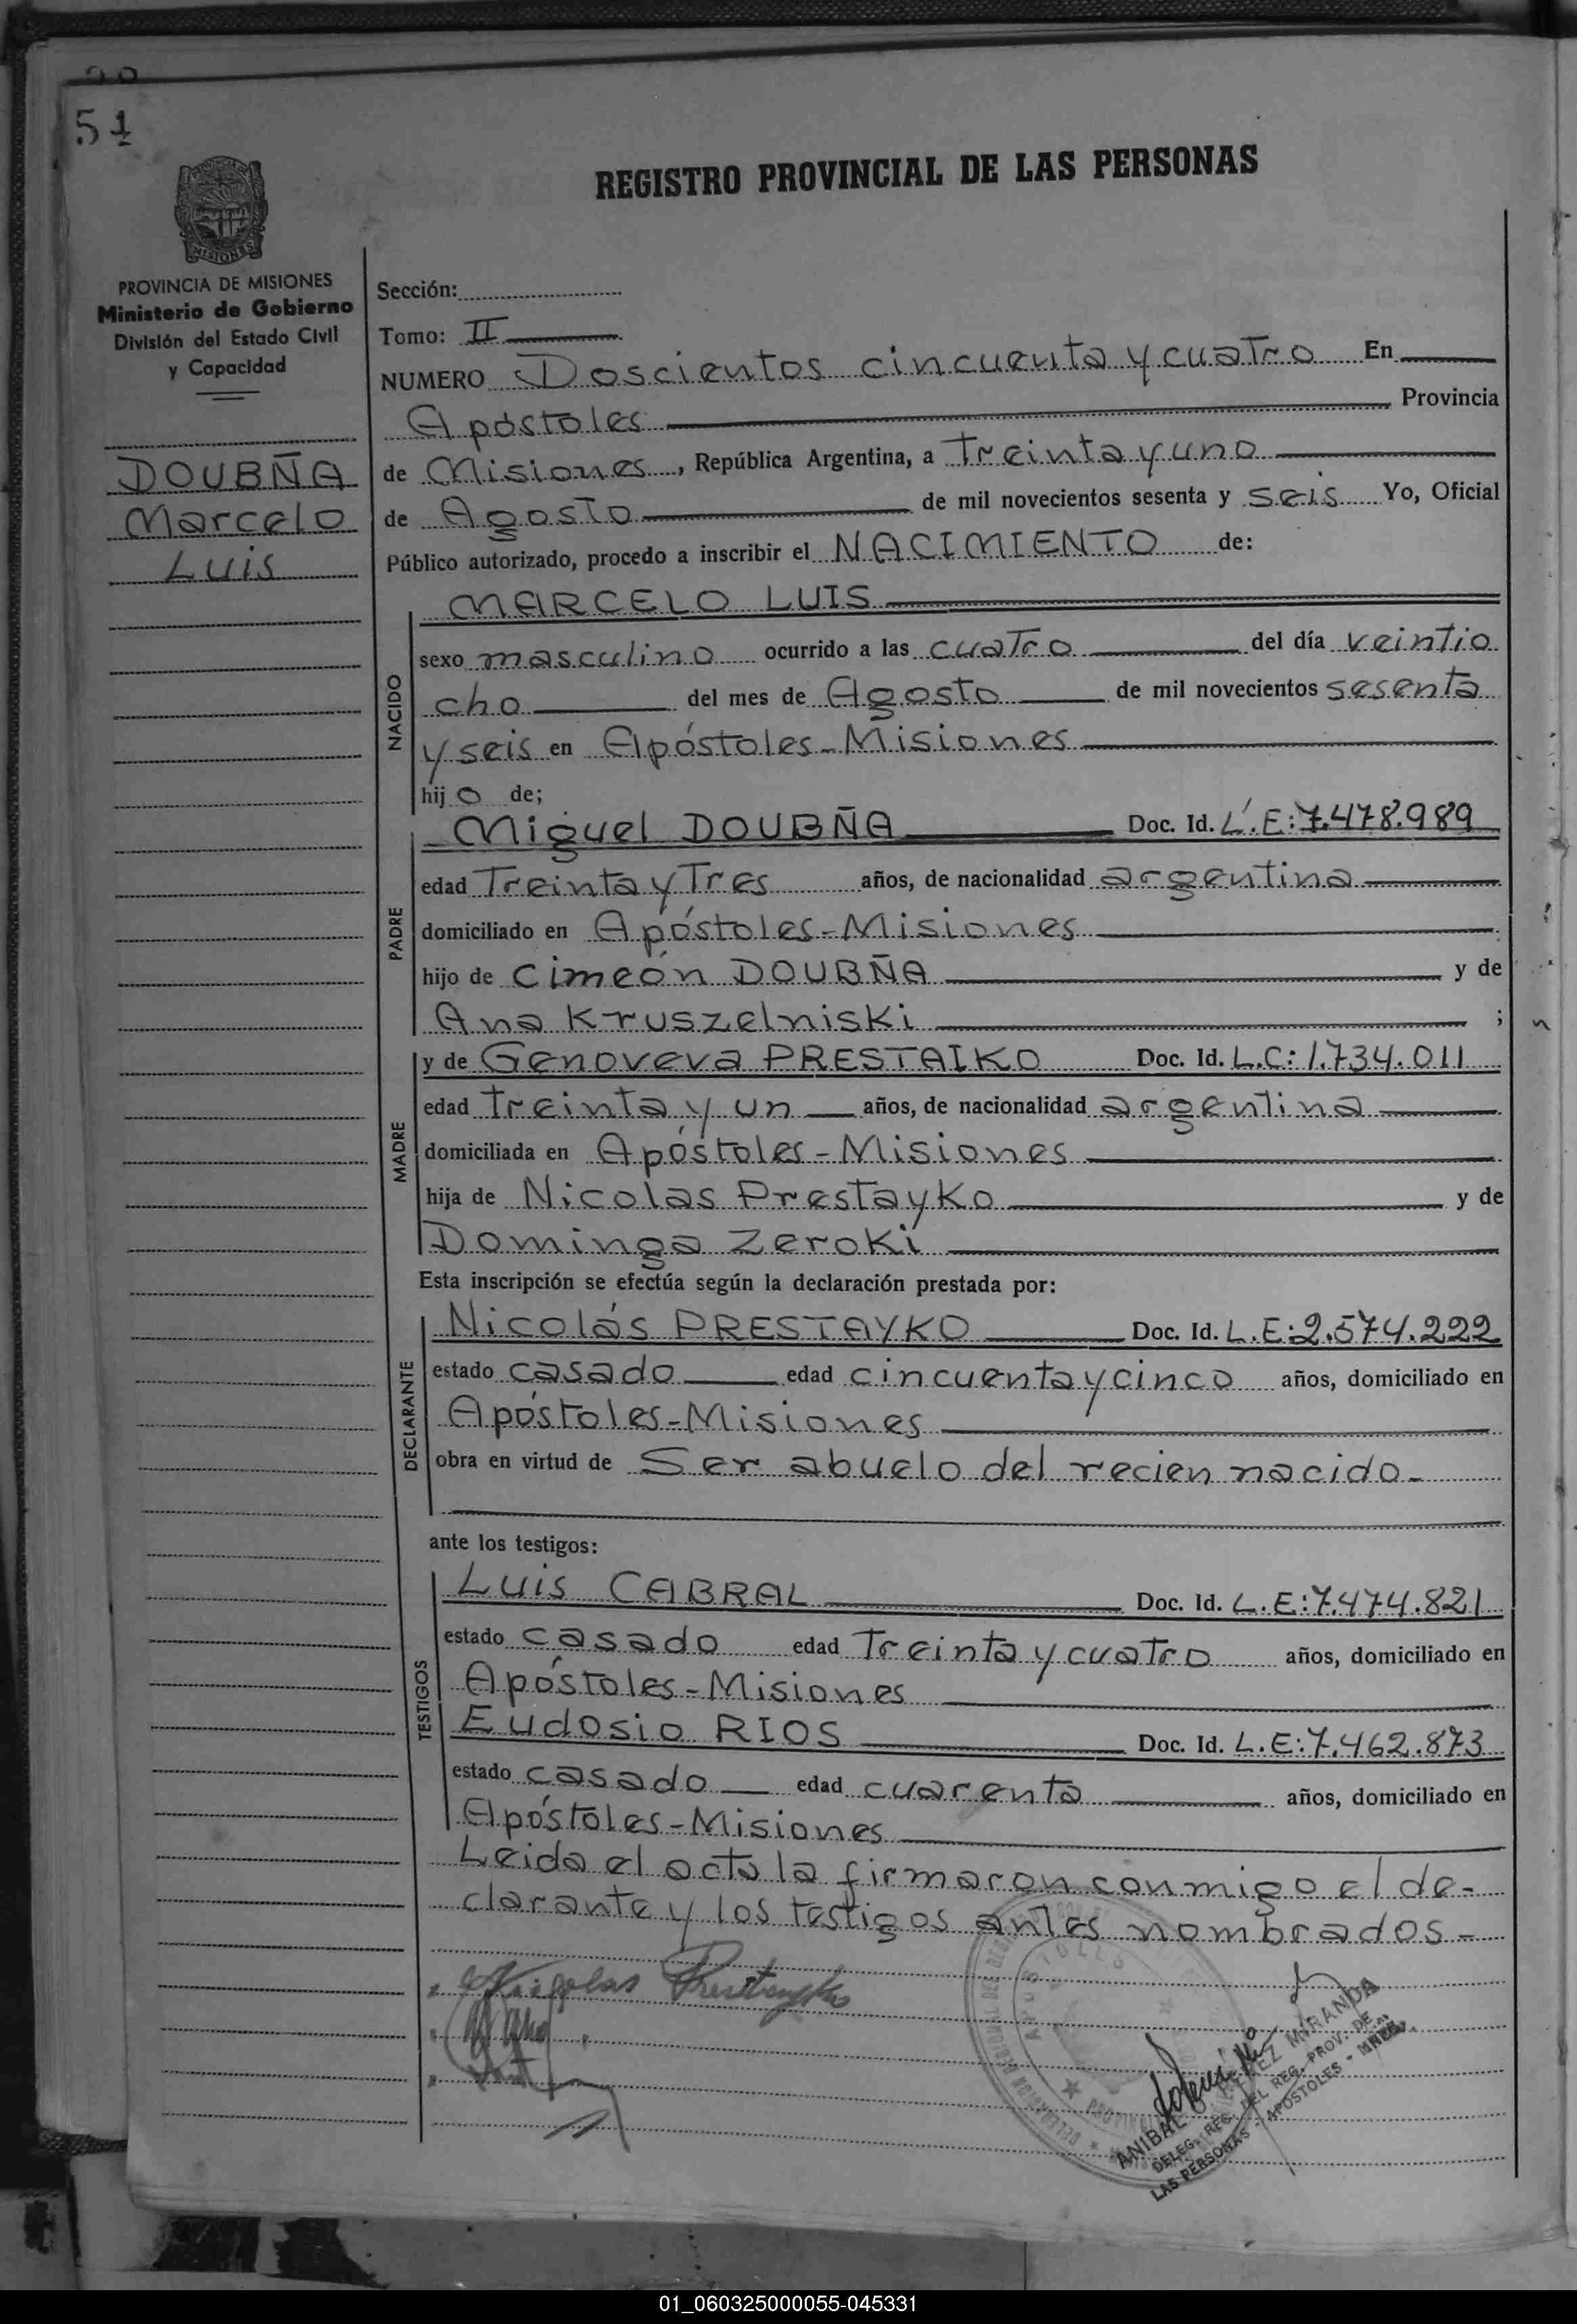 51
REGISTRO PROVINCIAL DE LAS PERSONAS
MISIONES
PROVINCIA DE MISIONES
Ministerio de Gobierno
División del Estado Civil
y Capacidad
DOUBÑA
Marcelo
Luis
Sección:
Tomo: II
NUMERO Doscientos cincuenta y cuatro En
Apóstoles Provincia
de Misiones, República Argentina, a Treinta y uno
de Agosto de mil novecientos sesenta y seis Yo, Oficial
Público autorizado, procedo a inscribir el NACIMIENTO de:
NACIDO
MARCELO LUIS
sexo masculino ocurrido a las cuatro del día veintio
cho del mes de Agosto de mil novecientos sesenta
y seis en Apóstoles-Misiones
hijo de;
PADRE
Miguel DOUBÑA Doc. Id. L.E:7.478.989
edad Treinta y Tres años, de nacionalidad argentina
domiciliado en Apóstoles-Misiones
hijo de Cimeón DOUBÑA y de
Ana Kruszelniski ;
MADRE
y de Genoveva PRESTAIKO Doc. Id. L.C: 1.734.011
edad treinta y un años, de nacionalidad argentina
domiciliada en Apóstoles-Misiones
hija de Nicolas Prestayko y de
Dominga Zeroki
Esta inscripción se efectúa según la declaración prestada por:
DECLARANTE
Nicolás PRESTAYKO Doc. Id. L.E:2.574.222
estado casado edad cincuenta y cinco años, domiciliado en
Apóstoles-Misiones
obra en virtud de Ser abuelo del recien nacido-
ante los testigos:
TESTIGOS
Luis CABRAL Doc. Id. L.E:7.474.821
estado casado edad Treinta y cuatro años, domiciliado en
Apóstoles-Misiones
Eudosio RIOS Doc. Id. L.E:7.462.873
estado casado edad cuarenta años, domiciliado en
Apóstoles-Misiones
Leida el acta la firmaron conmigo el de-
clarante y los testigos antes nombrados-
Nicolas Prestayko
ANIBAL MIRANDA
DELEG. REG. DEL REG. PROV. DE
LAS PERSONAS - APOSTOLES - MNES.
01_060325000055-045331